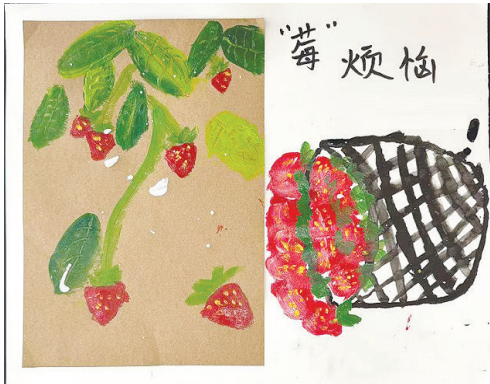 "莓"烦恼